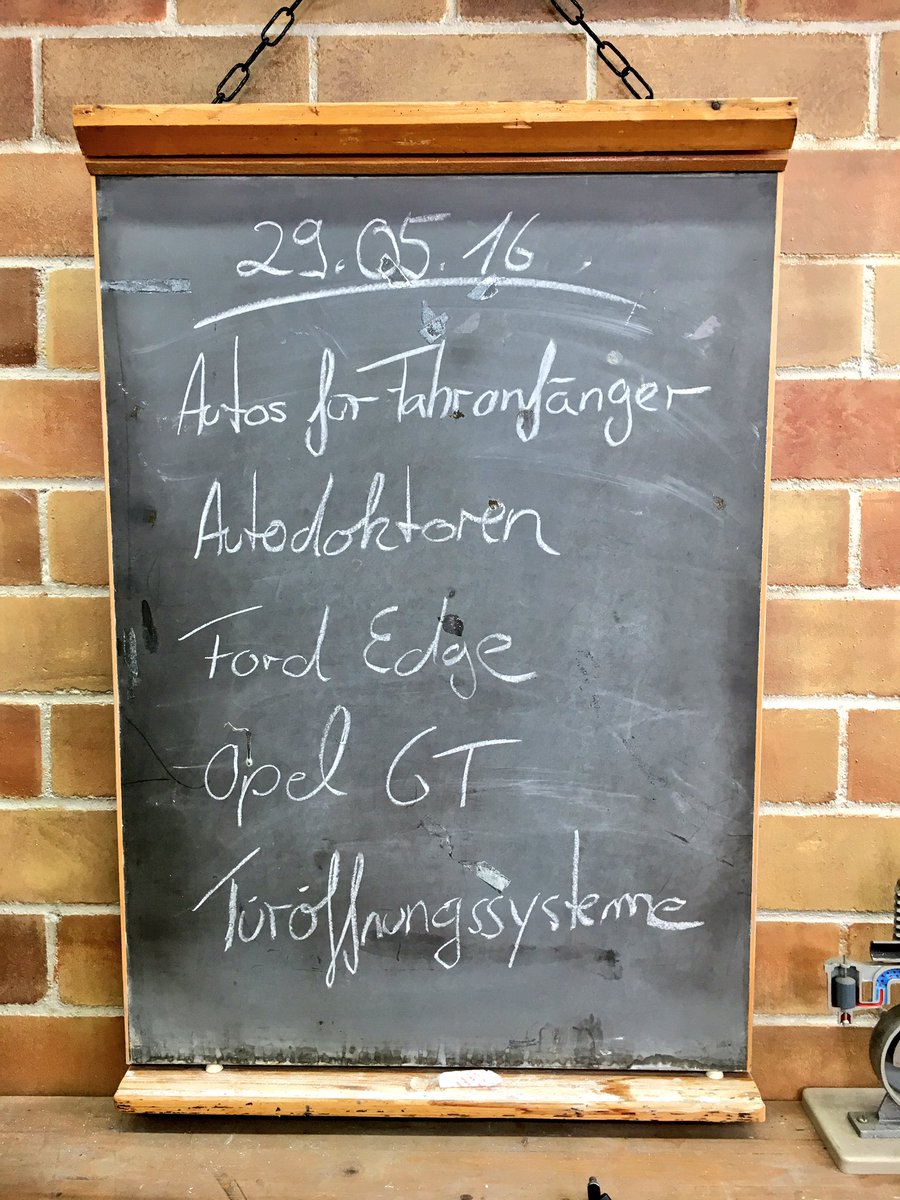 29.05.16
Autos für Fahranfänger
Autodoktoren
Ford Edge
Opel GT
Türöffnungssysteme